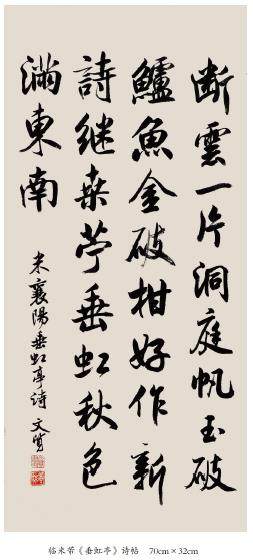 断雲一片洞庭帆玉破
鱸魚金破柑好作新
詩继桑苧垂虹秋色
滿東南
米襄陽垂虹亭诗 文
临米芾《垂虹亭》诗帖 70cm×32cm